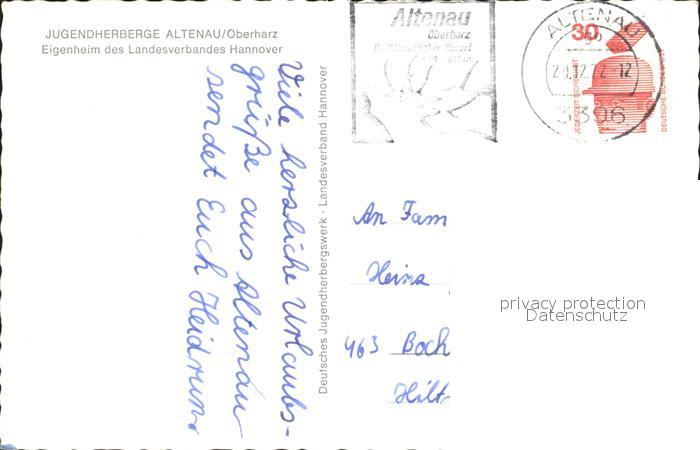 JUGENDHERBERGE ALTENAU/Oberharz
Eigenheim des Landesverbandes Hannover
Viele herzliche Urlaubs-
grüße aus Altenau
sendet Euch Heidrun
Deutsches Jugendherbergswerk · Landesverband Hannover
Altenau
Oberharz
ALTENAU
3396
30
JEDERZEIT SICHERHEIT
DEUTSCHE BUNDESPOST
An Fam
Heina
463 Boch
Hilt
privacy protection
Datenschutz